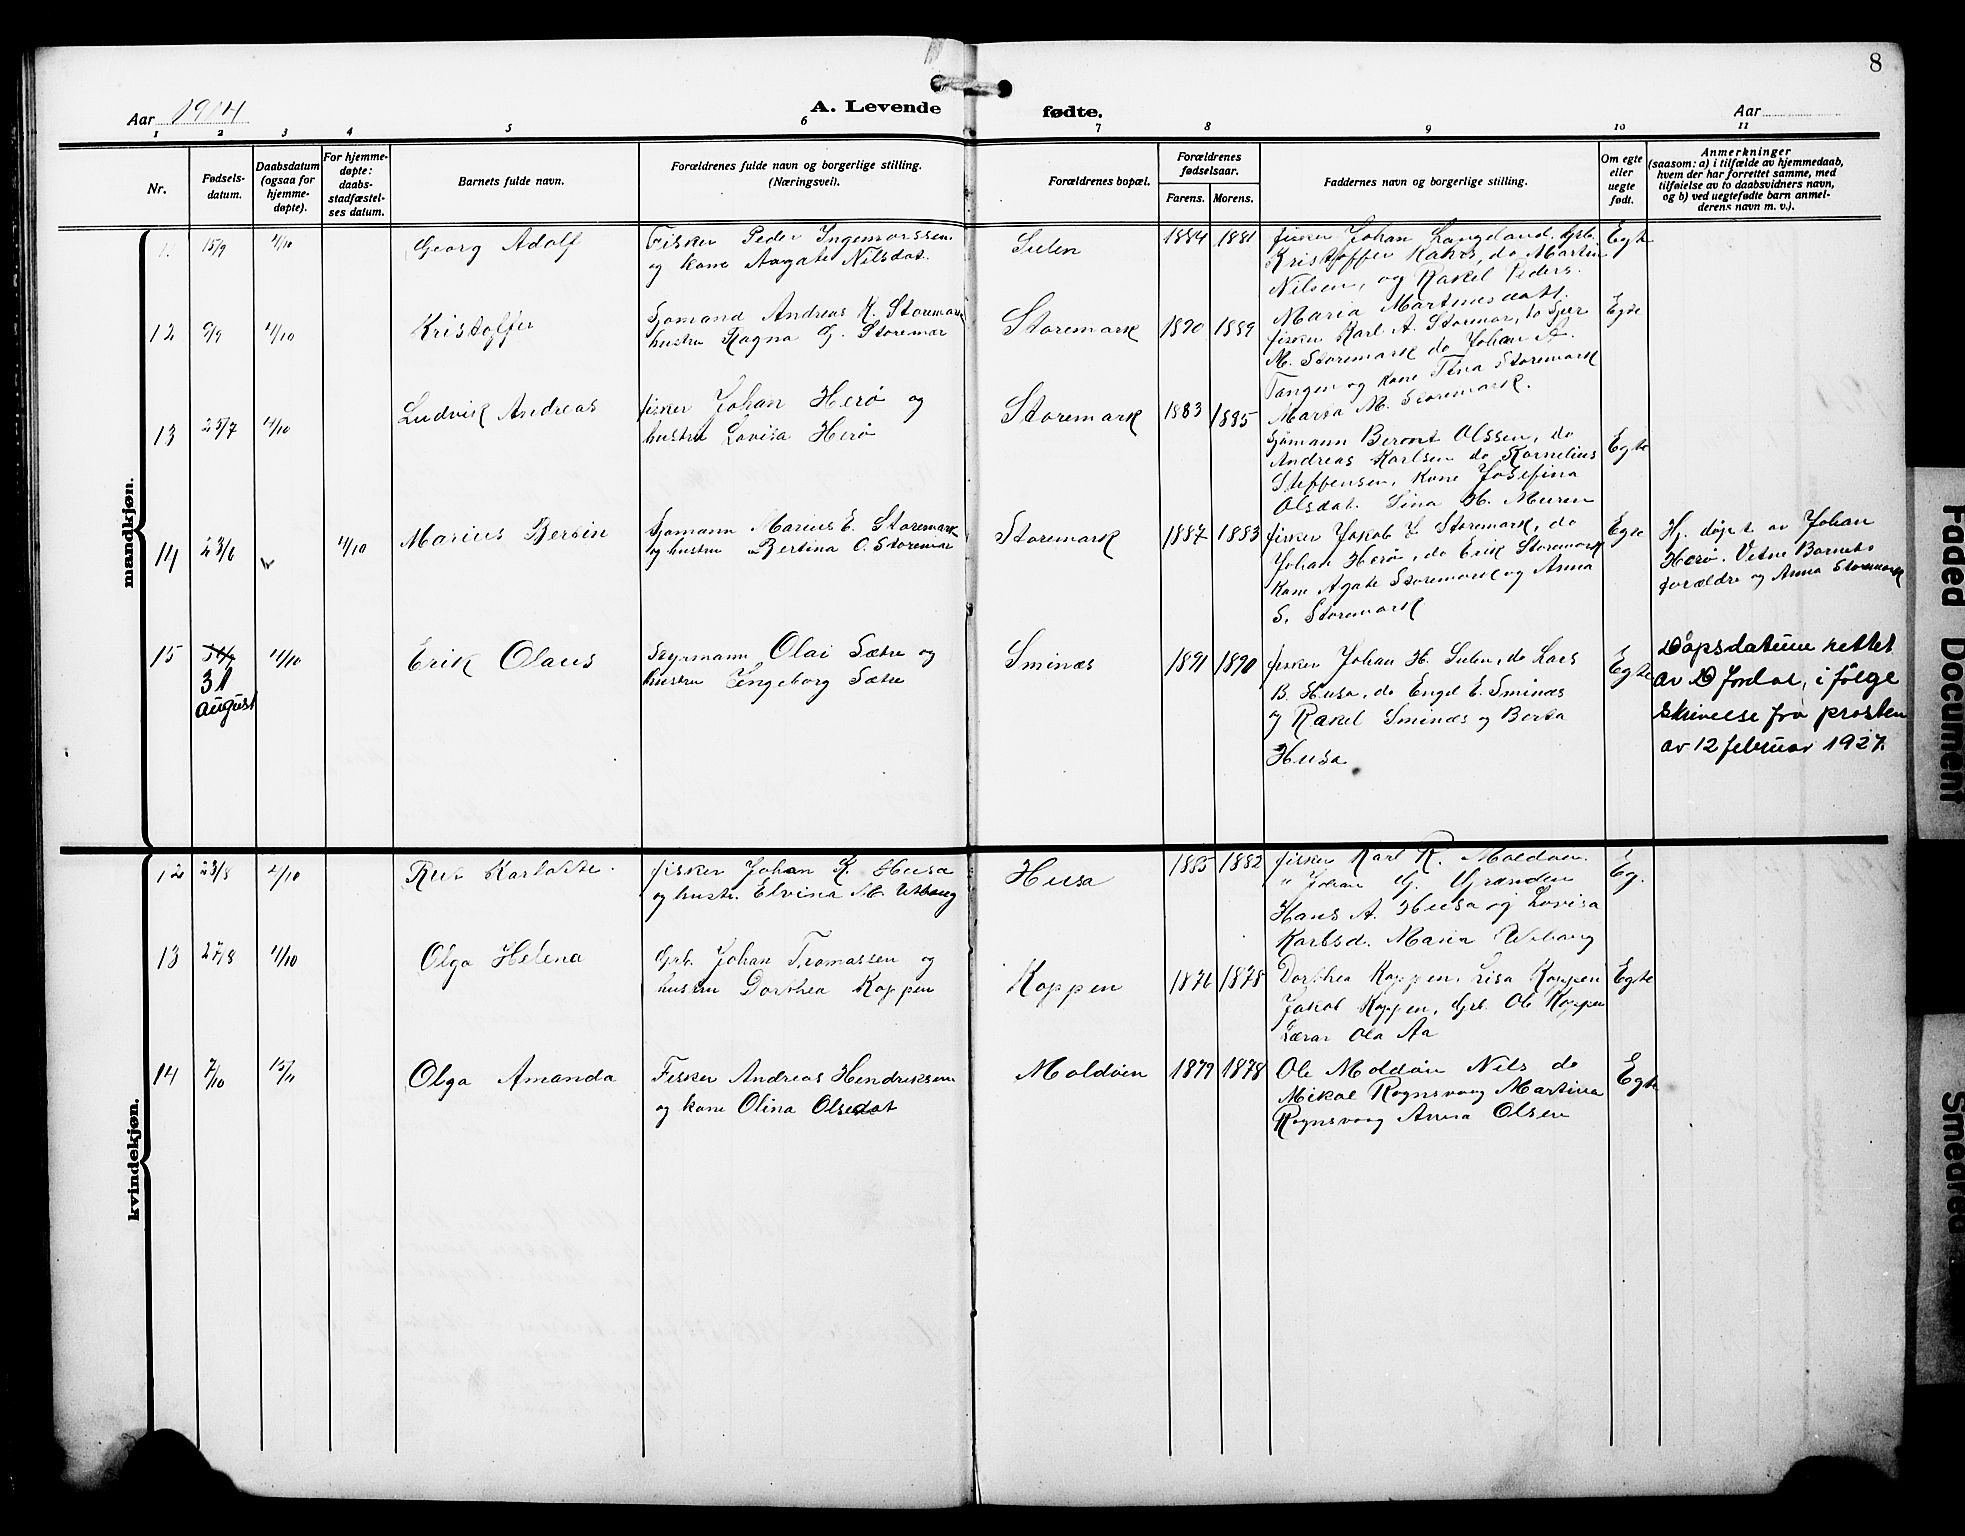 8
Aar 1914
A. Levende fødte.
Aar
1 2 3 4 5 6 7 8 9 10 11
Nr.
Fødsels-
datum.
Daabsdatum
(ogsaa for
hjemme-
døpte).
For hjemme-
døpte:
daabs-
stadfæstel-
ses datum.
Barnets fulde navn.
Forældrenes fulde navn og borgerlige stilling.
(Næringsvei).
Forældrenes bopæl.
Forældrenes
fødselsaar.
Farens. Morens.
Faddernes navn og borgerlige stilling.
Om egte
eller
uegte
født.
Anmerkninger
(saasom: a) i tilfælde av hjemmedaab,
hvem der har forrettet samme, med
tilføielse av to daabsvidners navn,
og b) ved uegtefødte barn anmel-
derens navn m. v.).
mandkjøn.
11 15/9 4/10 Georg Adolf
Fisker Peder Ingemorssen
og kone Aagate Nilsdat.
Sulen 1884 1881
fisker Johan Langeland, Grb.
Kristoffer Kahrs, do Martin
Nilsen, og Rakel Peders.
Maria Martinesdatt.
Egte
12 9/9 4/10 Kristoffer
Sjømand Andreas K. Storemark
hustru Ragna G. Storemar
Storemark 1890 1889
fisker Karl A. Storemar, do Sjur
M. Storemark do Johan A.
Tangen og kone Tina Storemark
Maria M. Storemark.
Egte
13 23/7 4/10 Ludvik Andreas
fisker Johan Herø og
hustru Lovisa Herø
Storemark 1883 1885
Sjømann Berent Olssen, do
Andreas Karlsen do Kornelius
Steffensen, Kone Josefina
Olsdat. Sina H. Muren
Egte
14 23/6 4/10 Marius Bertin
Sjømann Marius E. Storemark
og hustru Bertina O. Storemar
Storemark 1887 1883
fisker Jakob J Storemark, do
Johan Herø, do Erik Storemark
Kone Agate Storemark og Anna
S. Storemark
Egte
Hj. døpt av Johan
Herø. Vitne Barnets
forældre og Anna Storemark
15
31
august
4/10 Erik Olaus
Styrmann Olai Sætre og
hustru Ingeborg Sætre
Sminæs 1891 1890
fisker Johan H. Sulen, do Lars
B. Husa, do Engel E. Sminæs
og Rakel Sminæs og Berta
Husa
Egte
Dåpsdatum rettet
av D Jordal, i følge
skrivelse fra prosten
av 12 februar 1927.
kvindekjøn.
12 23/8 4/10 Rut Karlotte.
fisker Johan K. Husa
og hustr. Elvina M. Utvaag
Husa 1885 1882
fisker Karl R. Moldøen.
" Johan G. Grænden
Hans A. Husa og Lovisa
Karlsd. Maria Utvaag
Eg.
13 27/8 4/10 Olga Helena
Grb. Johan Tomassen og
hustru Dorthea Koppen
Koppen 1876 1878
Dorthea Koppen, Lisa Koppen
Jakob Koppen, Grb. Ole Koppen
Lærar Ola Aa
Egte
14 7/10 15/11 Olga Amanda
Fisker Andreas Hendriksen
og kone Olina Olsedat
Moldøen 1879 1878
Ole Moldøen Nils do
Mikal Rognsvaag Martina
Rognsvaag Anna Olsen
Egte
Faded Document
Smeared